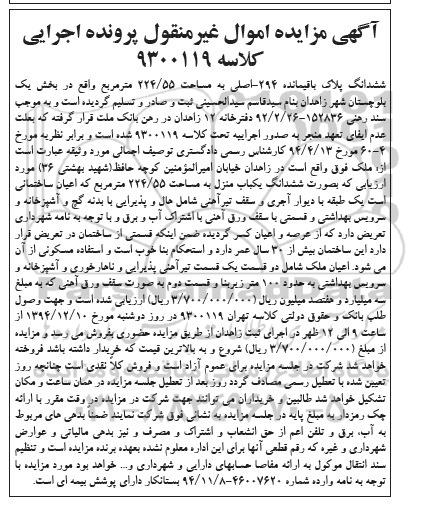 آگهی مزایده اموال غیرمنقول پرونده اجرایی
کلاسه ۹۳۰۰۱۱۹
ششدانگ پلاک باقیمانده ۲۹۴-اصلی به مساحت ۲۲۴/۵۵ مترمربع واقع در بخش یک
بلوچستان شهر زاهدان بنام سیدقاسم سیدالحسینی ثبت و صادر و تسلیم گردیده است و به موجب
سند رهنی ۱۵۲۸۳۶-۹۲/۲/۲۶ دفترخانه ۱۲ زاهدان در رهن بانک ملت قرار گرفته که بعلت
عدم ایفای تعهد منجر به صدور اجراییه تحت کلاسه ۹۳۰۰۱۱۹ شده است و برابر نظریه مورخ
۶۰-۴ مورخ ۹۴/۴/۱۳ کارشناس رسمی دادگستری توصیف اجمالی مورد وثیقه عبارت است
از: ملک فوق واقع است در زاهدان خیابان امیرالمؤمنین کوچه حافظ(شهید بهشتی ۳۶) مورد
ارزیابی که بصورت ششدانگ یکباب منزل به مساحت ۲۲۴/۵۵ مترمربع که اعیان ساختمانی
است یک طبقه با دیوار آجری و سقف تیرآهنی شامل هال و پذیرایی با بدنه گچ و آشپزخانه و
سرویس بهداشتی و قسمتی با سقف ورق آهنی با اشتراک آب و برق و با توجه به نامه شهرداری
تعریض دارد که از عرصه و اعیان کسر گردیده ضمن اینکه قسمتی از ساختمان در تعریض قرار
دارد این ساختمان بیش از ۳۰ سال عمر دارد و استحکام بنا خوب است و استفاده مسکونی از آن
می شود. اعیان ملک شامل دو قسمت یک قسمت تیرآهنی پذیرایی و ناهارخوری و آشپزخانه و
سرویس بهداشتی به حدود ۱۰۰ متر زیربنا و قسمت دوم به صورت سقف ورق آهنی که به مبلغ
سه میلیارد و هفتصد میلیون ریال (۳/۷۰۰/۰۰۰/۰۰۰ ریال) ارزیابی شده است و جهت وصول
طلب بانک و حقوق دولتی کلاسه تهران ۹۳۰۰۱۱۹ در روز دوشنبه مورخ ۱۳۹۴/۱۲/۱۰ از
ساعت ۹ الی ۱۲ ظهر در اجرای ثبت زاهدان از طریق مزایده حضوری بفروش می رسد و مزایده
از مبلغ (۳/۷۰۰/۰۰۰/۰۰۰ ریال) شروع و به بالاترین قیمت که خریدار داشته باشد فروخته
خواهد شد شرکت در جلسه مزایده برای عموم آزاد است و فروش کلا نقدی است چنانچه روز
تعیین شده با تعطیل رسمی مصادف گردد روز بعد از تعطیل جلسه مزایده در همان ساعت و مکان
تشکیل خواهد شد طالبین و خریداران می توانند جهت شرکت در مزایده در وقت مقرر با ارائه
چک رمزدار به مبلغ پایه در جلسه مزایده به نشانی فوق شرکت نمایند ضمناً بدهی های مربوط
به آب، برق و تلفن اعم از حق انشعاب و اشتراک و مصرف و نیز بدهی مالیاتی و عوارض
شهرداری و غیره که رقم قطعی آنها برای این اداره معلوم نشده بعهده برنده مزایده است و تنظیم
سند انتقال موکول به ارائه مفاصا حسابهای دارایی و شهرداری و... خواهد بود مورد مزایده با
توجه به نامه وارده شماره ۴۶۰۰۷۶۲۰-۹۴/۱۱/۸ بستانکار دارای پوشش بیمه ای است.